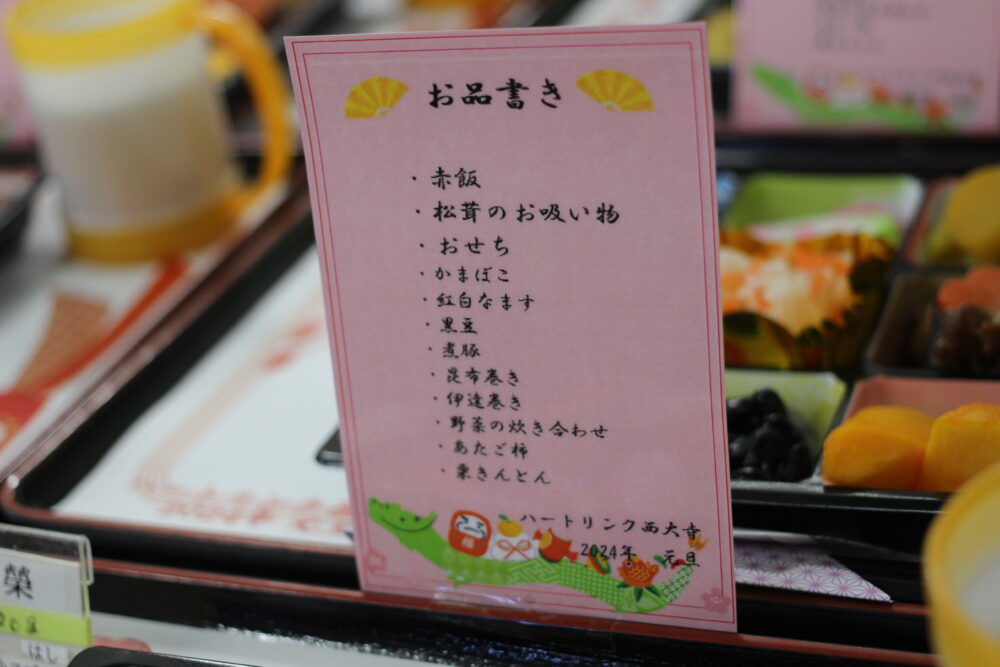 お品書き
・赤飯
・松茸のお吸い物
・おせち
・かまぼこ
・紅白なます
・黒豆
・煮豚
・昆布巻き
・伊達巻き
・野菜の炊き合わせ
・あたご柿
・栗きんとん
ハートリンク西大寺
2024年 元旦
榮
はし